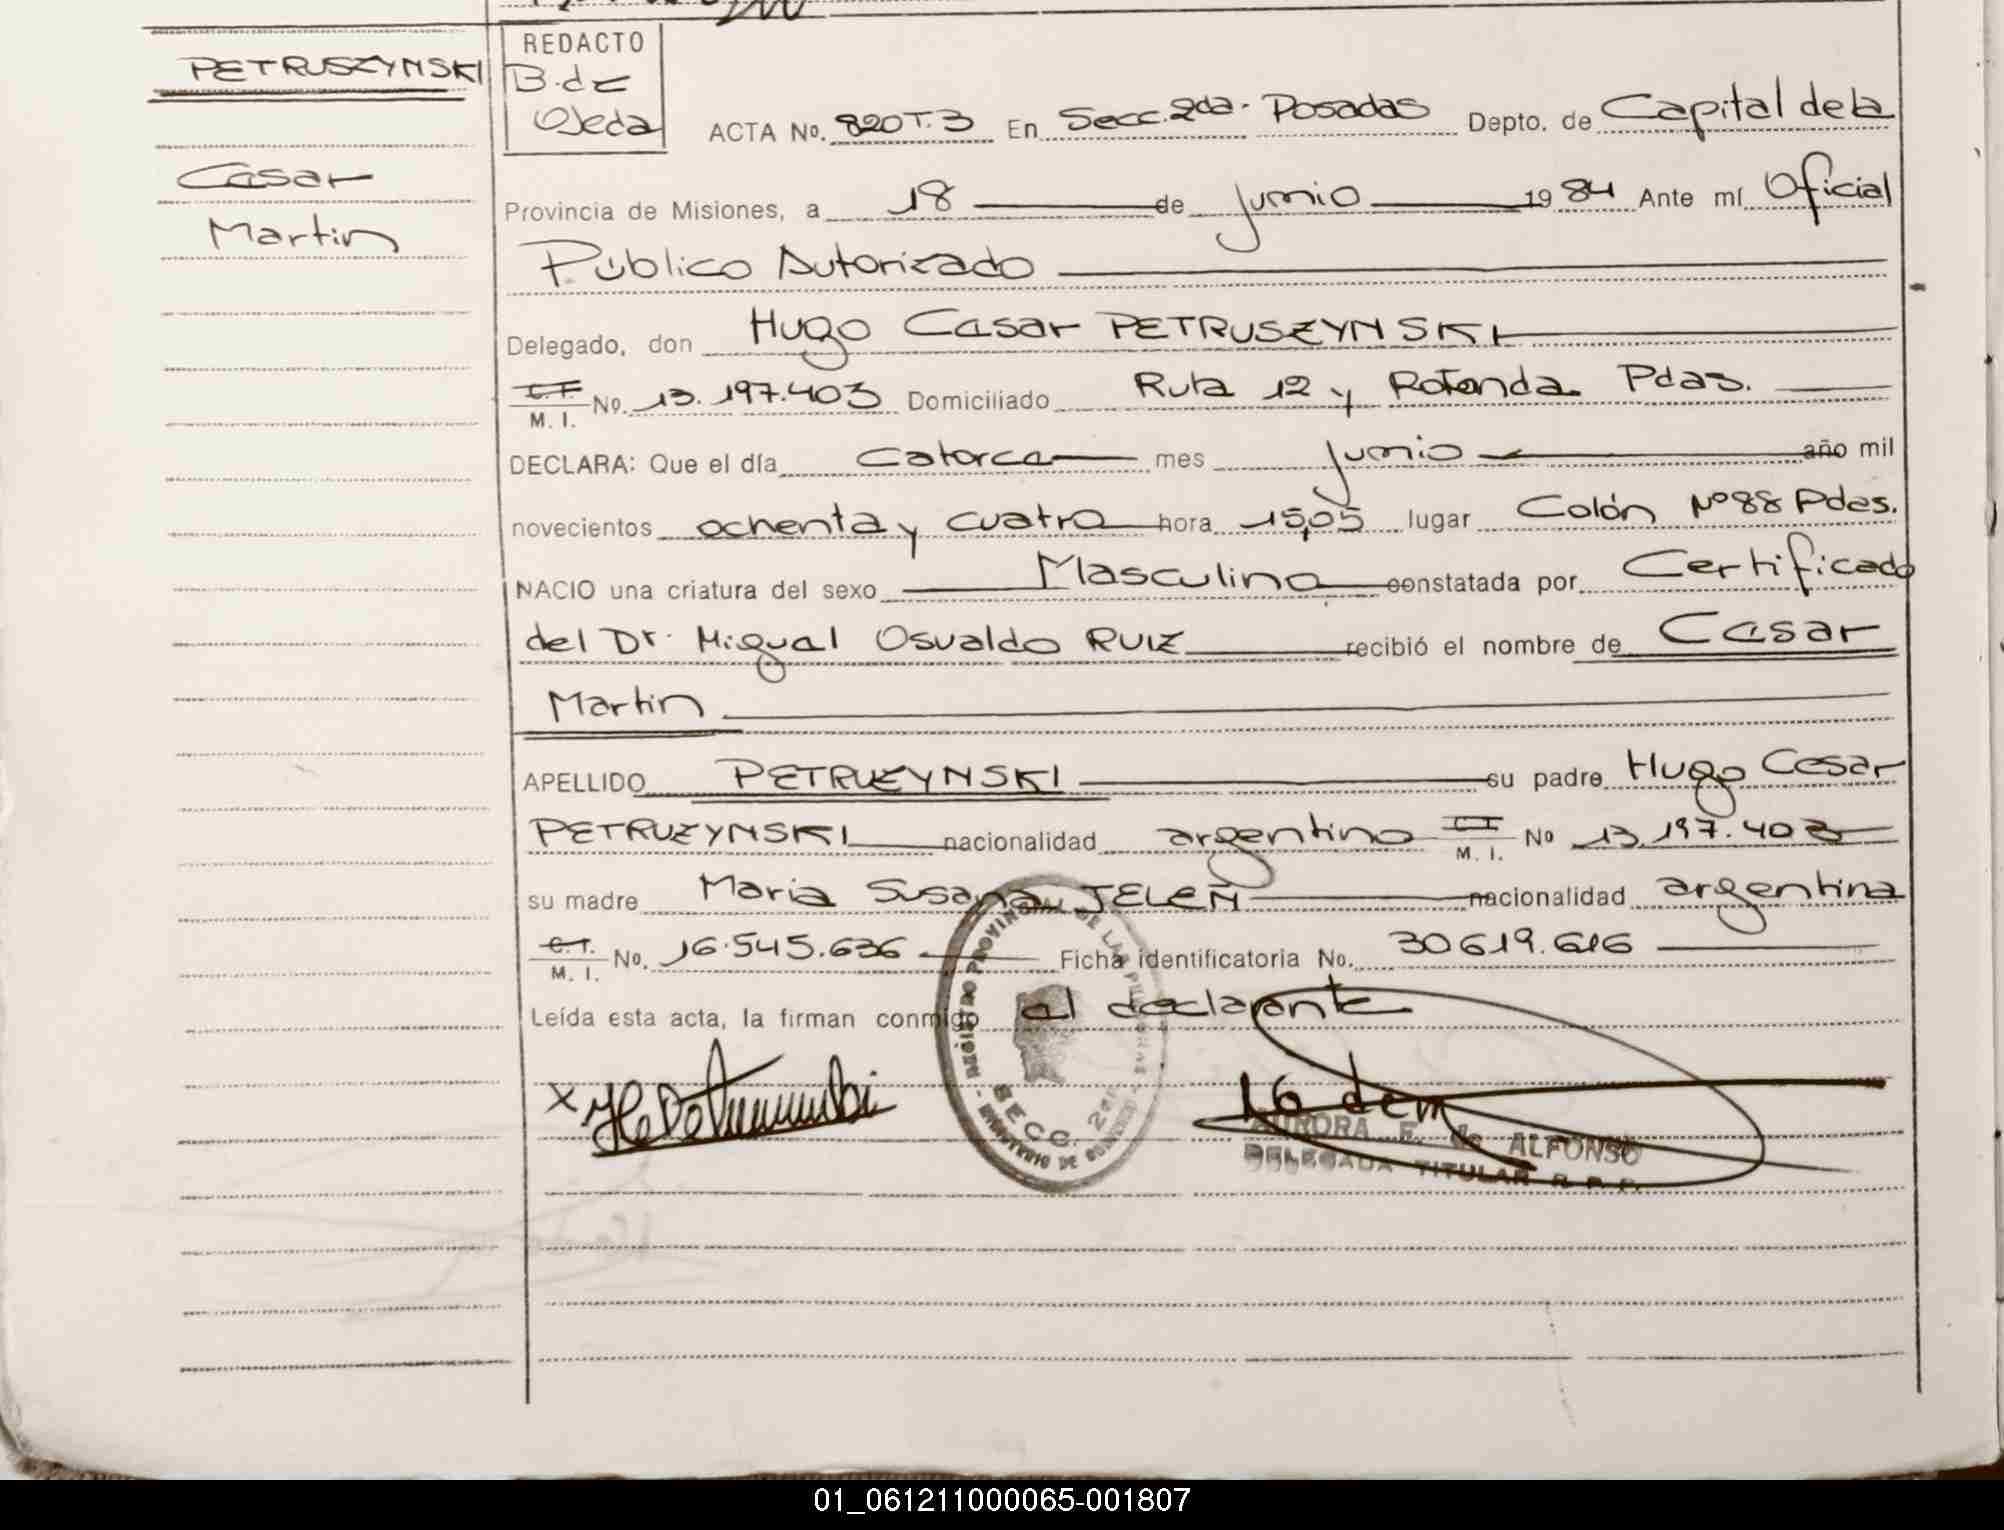 PETRUSZYNSKI
Cesar
Martin
REDACTO
B. de
Ojeda
ACTA No. 820T.3 En Secc. 2da. Posadas Depto. de Capital de la
Provincia de Misiones, a 18 de junio 1984 Ante mí Oficial
Público Autorizado
Delegado, don Hugo Cesar PETRUSZYNSKI
C.I. M. I. No. 13.197.403 Domiciliado Ruta 12 y Rotonda Pdas.
DECLARA: Que el día catorce mes junio año mil
novecientos ochenta y cuatro hora 15,05 lugar Colón Nº 88 Pdas.
NACIO una criatura del sexo Masculino constatada por Certificado
del Dr. Miguel Osvaldo RUIZ recibió el nombre de Cesar
Martin
APELLIDO PETRUZYNSKI su padre Hugo Cesar
PETRUZYNSKI nacionalidad argentino C.I. M. I. No 13.197.403
su madre Maria Susana JELEÑ nacionalidad argentina
C.I. M. I. No. 16.545.636 Ficha identificatoria No. 30619.616
Leída esta acta, la firman conmigo el declarante
REGISTRO PROVINCIAL DE LAS PERSONAS
SECC. 2da
MINISTERIO DE GOBIERNO
AURORA F. de ALFONSO
DELEGADA TITULAR R. P. P.
01_061211000065-001807